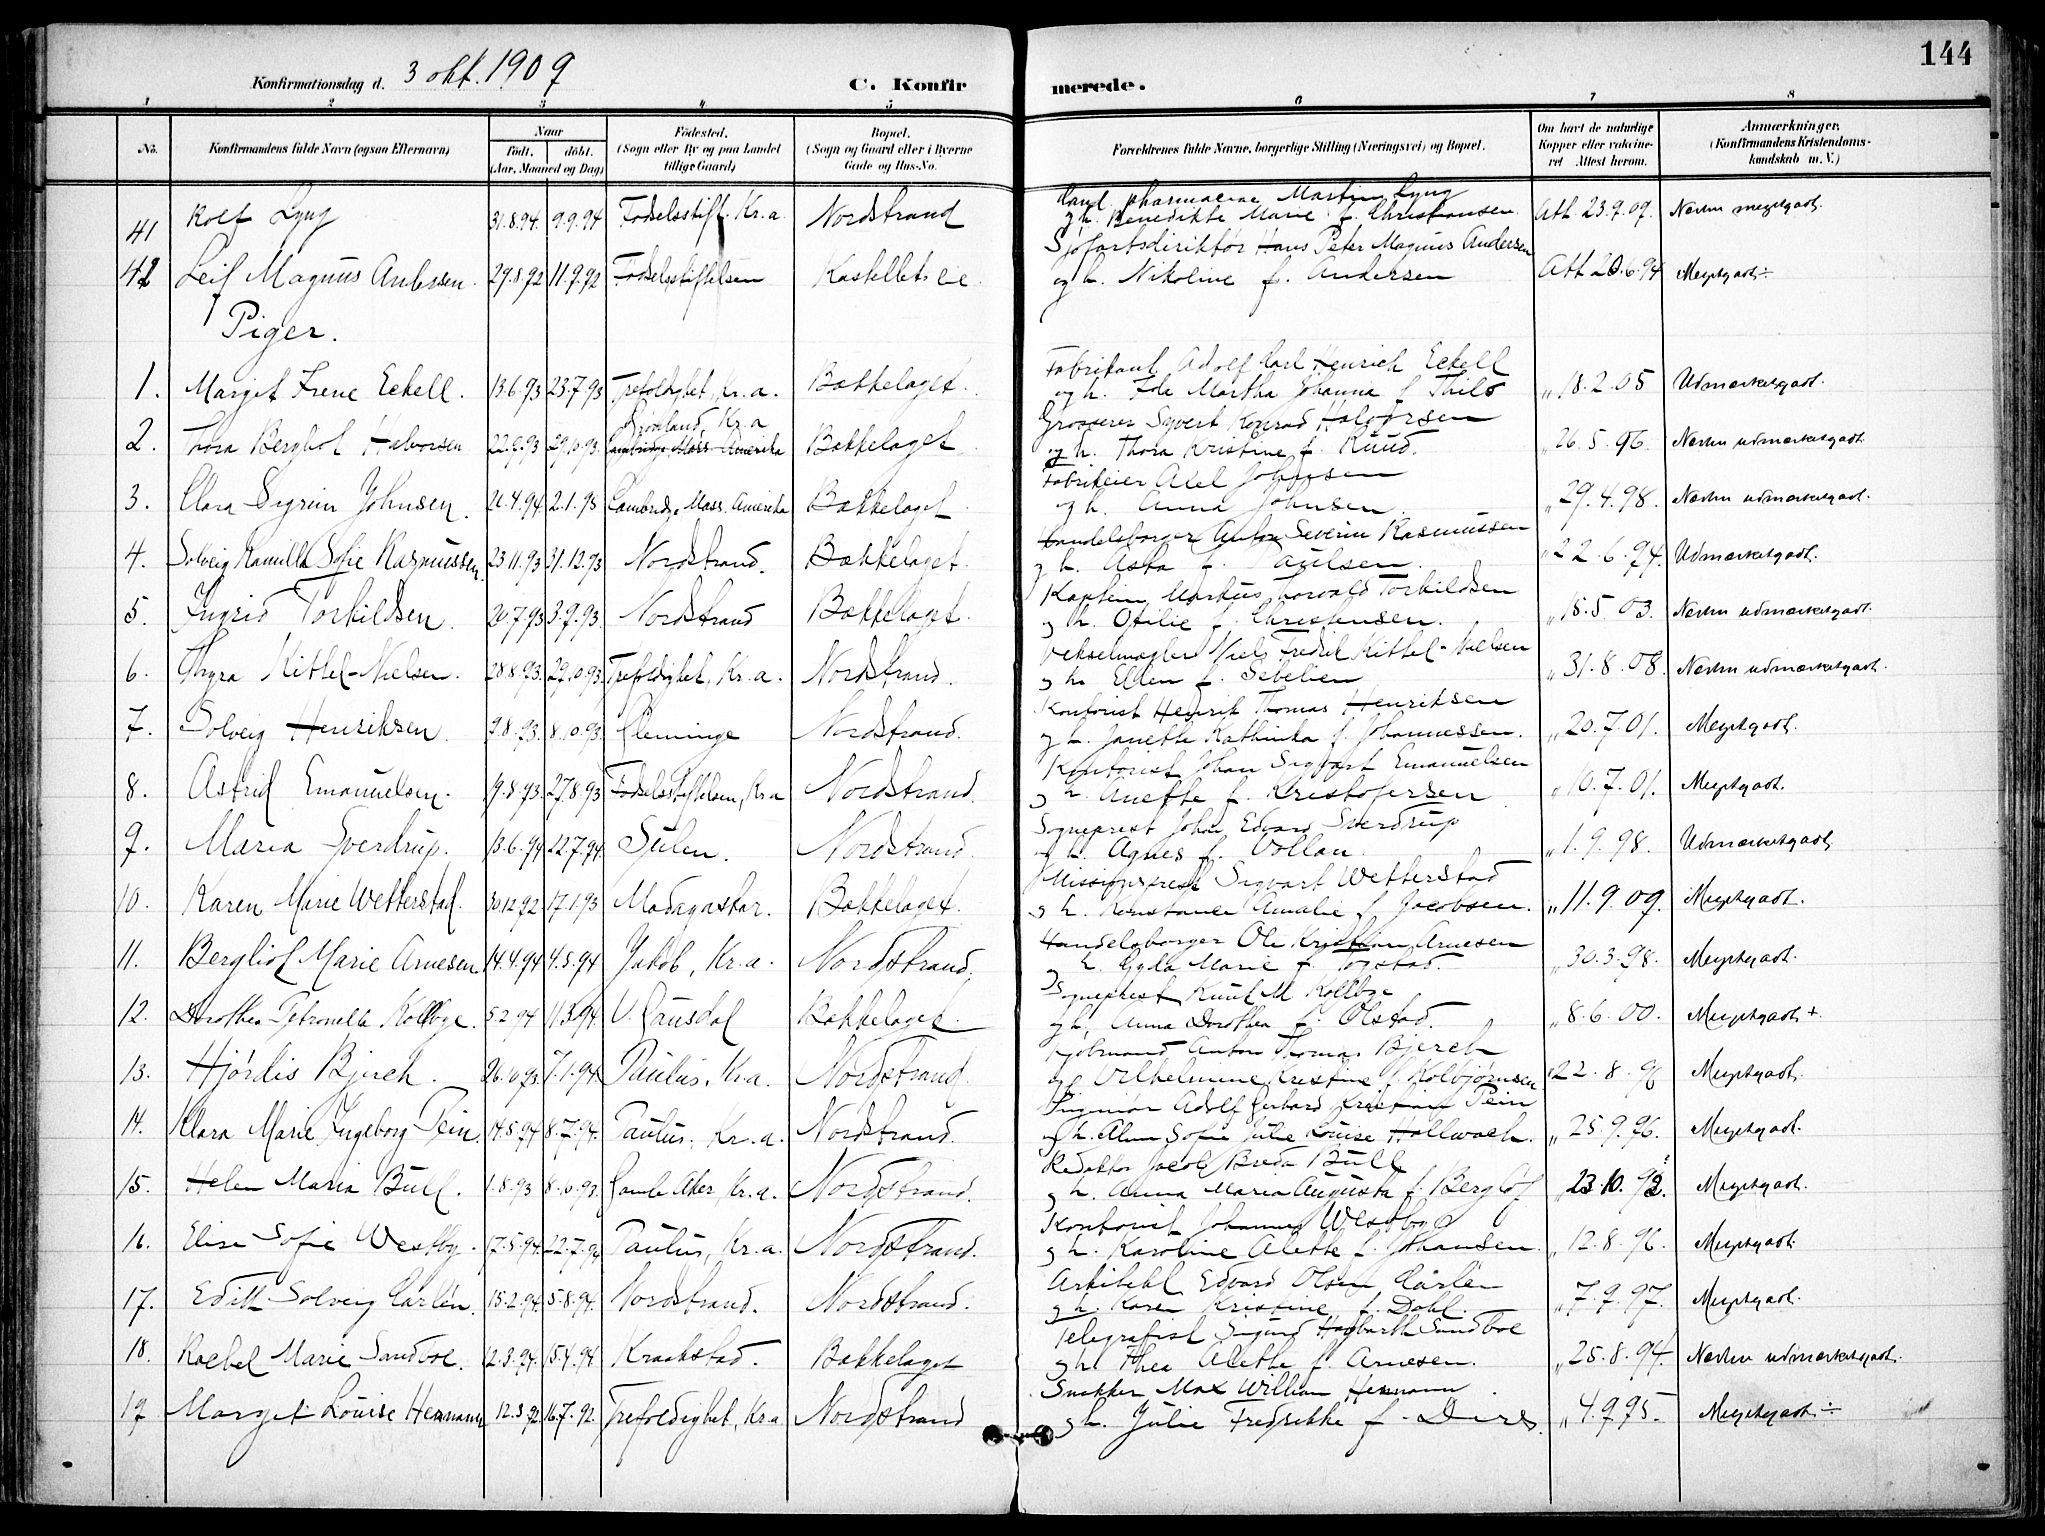 144
Konfirmationsdag d. 3 okt. 1909 C. Konfirmerede.
1 2 3 4 5 6 7 8
No. Konfirmandens fulde Navn (ogsaa Efternavn) Naar Födt. döbt. (Aar, Maaned og Dag) Födested. (Sogn eller By og paa Landet tillige Gaard) Bopæl. (Sogn og Gaard eller i Byerne Gade og Hus-No. Forældrenes fulde Navne, borgerlige Stilling (Næringsvei) og Bopæl. Om havt de naturlige Kopper eller vaccineret Attest herom. Anmærkninger. (Konfirmandens Kristendomskundskab m. V.)
41 Rolf Lyng 31.8.94. 9.9.94 Fødselsstift. Kr.a. Nordstrand Cand. pharmaciae Martin Lyng
og h. Benedikte Marie f. Christiansen. Att. 23.9.09. Næsten megetgodt.
42 Leif Magnus Andersen. 29.8.92 11.9.92 Fødselsstiftelsen Kastellet Sjøfartsdirektør Hans Peter Magnus Andersen
og h. Nikoline f. Andersen Att. 20.6.94 Megetgodt ÷
Piger.
1. Margit Irene Eckell. 13.6.93 23.7.93 Trefoldighet, Kr.a. Bækkelaget. Fabrikant Adolf Carl Henrich Eckell
og h. Ida Martha Johanna f. Thilo „ 18.2.05 Udmærketgodt.
2. Thora Bergliot Halvorsen 22.9.93 29.10.93. Grønland, Kr.a Cambridge, Mass. Amerika Bækkelaget Grosserer Syvert Konrad Halvorsen
og h. Thora Kristine f. Ruud. „ 26.5.96. Næsten udmærketgodt.
3. Clara Sigrun Johnsen. 26.4.94 2.1.95 Cambridge Mass. Amerika Bækkelaget. Axel Johnsen
og h. Anna Johnsen. „ 29.4.98. Næsten udmærketgodt.
4. Solveig Kamilla Sofie Rasmussen. 23.11.93 31.12.93 Nordstrand. Bækkelaget. Handelsborger Anton Severin Rasmussen
og h. Asta f. Paulsen. „ 22.6.94. Udmærketgodt.
5. Ingrid Torkildsen. 20.7.93 3.9.93. Nordstrand Bækkelaget. Kaptein Markus Torvald Torkildsen
og h. Otilie f. Christensen. „ 18.5.03. Næsten udmærketgodt.
6. Thyra Kittel-Nielsen. 28.8.93. 29.10.93. Trefoldighet, Kr.a. Nordstrand. Vekselmægler Niels Fredrik Kittel-Nielsen
og h. Ellen f. Sebelien „ 31.8.08. Næsten udmærketgodt.
7. Solveig Henriksen. 9.8.93. 8.10.93. Glemminge Nordstrand. Kontorist Henrik Thomas Henriksen
og h. Janette Kathinka f. Johannessen. „ 20.7.01. Megetgodt.
8. Astrid Emanuelsen. 19.8.93. 27.8.93 Fødselsstiftelsen, Kr.a Nordstrand. Kontorist Johan Sigvart Emanuelsen
og h. Anette f. Kristofersen „ 10.7.01. Megetgodt.
9. Maria Sverdrup. 13.6.94 22.7.94. Sulen. Nordstrand. Sogneprest Johan Edvard Sverdrup
og h. Agnes f. Vollan. „ 1.9.98. Udmærketgodt.
10. Karen Marie Wetterstad. 30.12.92. 17.1.93 Madagaskar. Bækkelaget. Missionsprest Sigvart Wetterstad
og h. Konstance Amalie f. Jacobsen. „ 11.9.09. Megetgodt.
11. Bergliot Marie Arnesen 14.4.94 4.5.94 Jakob, Kr.a. Nordstrand. Handelsborger Ole Kristian Arnesen
og h. Gyda Marie f. Togstad. „ 30.3.98. Megetgodt.
12. Dorothea Petronella Kolbye. 5.2.94 11.3.94. V. Gausdal Bækkelaget. Sogneprest Knut M. Kolbye
og h. Anna Dorothea f. Olstad. „ 8.6.00. Megetgodt +
13. Hjørdis Bjerch. 26.10.93. 7.1.94. Paulus, Kr.a. Nordstrand. Kjøbmand Anton Thomas Bjerch
og Vilhelmine Kristine f. Kolbjørnsen „ 22.8.96 Megetgodt.
14. Klara Marie Ingeborg Pein. 14.5.94 8.7.94. Paulus. Kr.a. Nordstrand. Ingeniør Adolf Gerhard Kristian Pein
og h. Alma Sofie Julie Louise Hallwach. „ 25.9.96. Megetgodt.
15. Helen Maria Bull. 1.8.93 8.10.93. Gamle Aker, Kr.a. Nordstrand. Redaktør Jacob Breda Bull
og h. Anna Maria Augusta f. Berglöf „ 23.10.93. Megetgodt.
16. Elise Sofie Westby. 17.5.94. 22.7.94 Paulus, Kr.a. Nordstrand. Kontorist Johannes Westby
og h. Karoline Alette f. Johansen. „ 12.8.96. Megetgodt.
17. Edith Solveig Carlén. 15.2.94. 5.8.94. Nordstrand. Nordstrand. Arkitekt Edvard Olsen Carlén
og h. Karen Kristine f. Dahl. „ 7.9.97. Megetgodt.
18. Rachel Marie Sandboe. 12.3.94. 15.4.94 Kraakstad. Bækkelaget Telegrafist Sigurd Hagbarth Sandboe
og h. Thea Alette f. Arnesen. „ 25.8.94. Næsten udmærketgodt.
19 Margit Louise Hermann 12.3.92 16.7.92. Trefoldighet, Kr.a Nordstrand Snekker Max William Hermann
og h. Julie Fredrikke f. „ 4.9.95. Megetgodt ÷